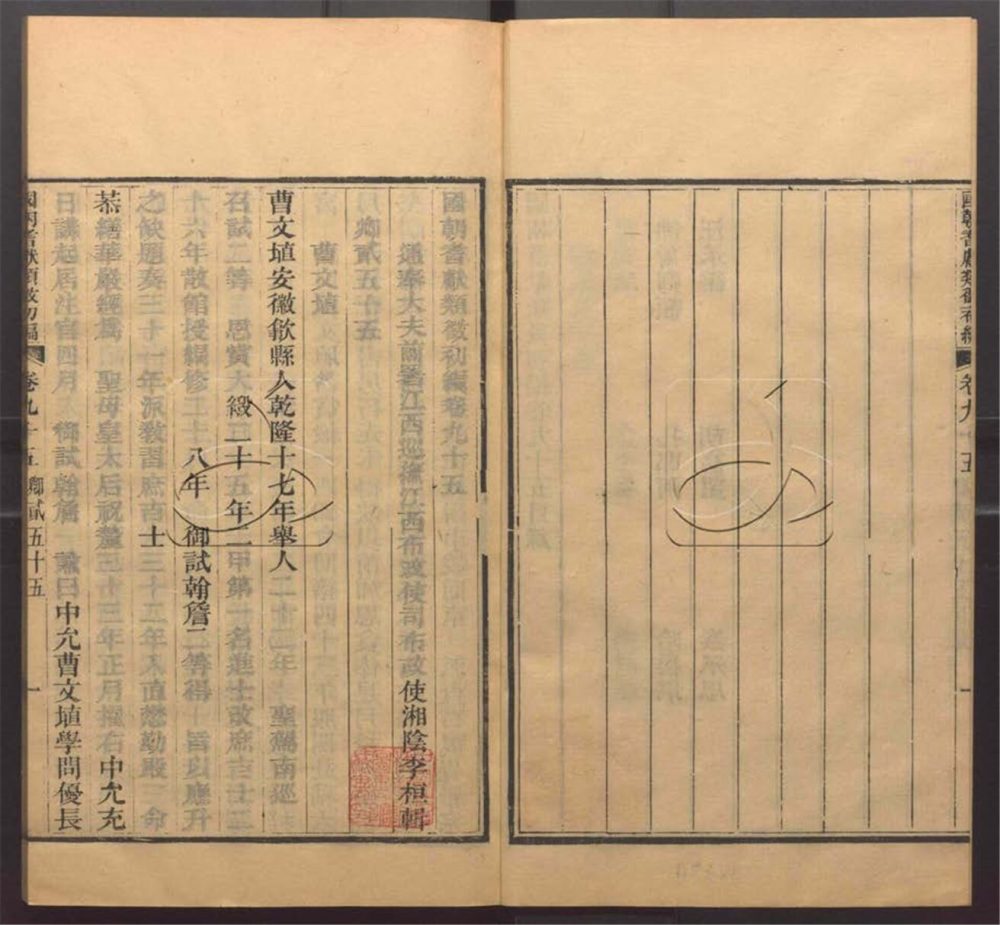 國朝耆獻類徵初編卷九十五
通奉大夫前署江西巡撫江西布政使司布政使湘陰李桓輯
卿貳五十五
曹文埴
曹文埴安徽歙縣人乾隆十七年舉人二十二年聖駕南巡
召試二等恩賞大緞二十五年二甲第一名進士改庶吉士二
十六年散館授編修二十八年御試翰詹二等得旨以應升
之缺題奏三十一年派教習庶吉士三十二年入直懋勤殿命
恭繕華嚴經爲聖母皇太后祝釐三十三年正月擢右中允充
日講起居注官四月御試翰詹諭曰中允曹文埴學問優長
國朝耆獻類徵初編 卷九十五 卿貳五十五 一